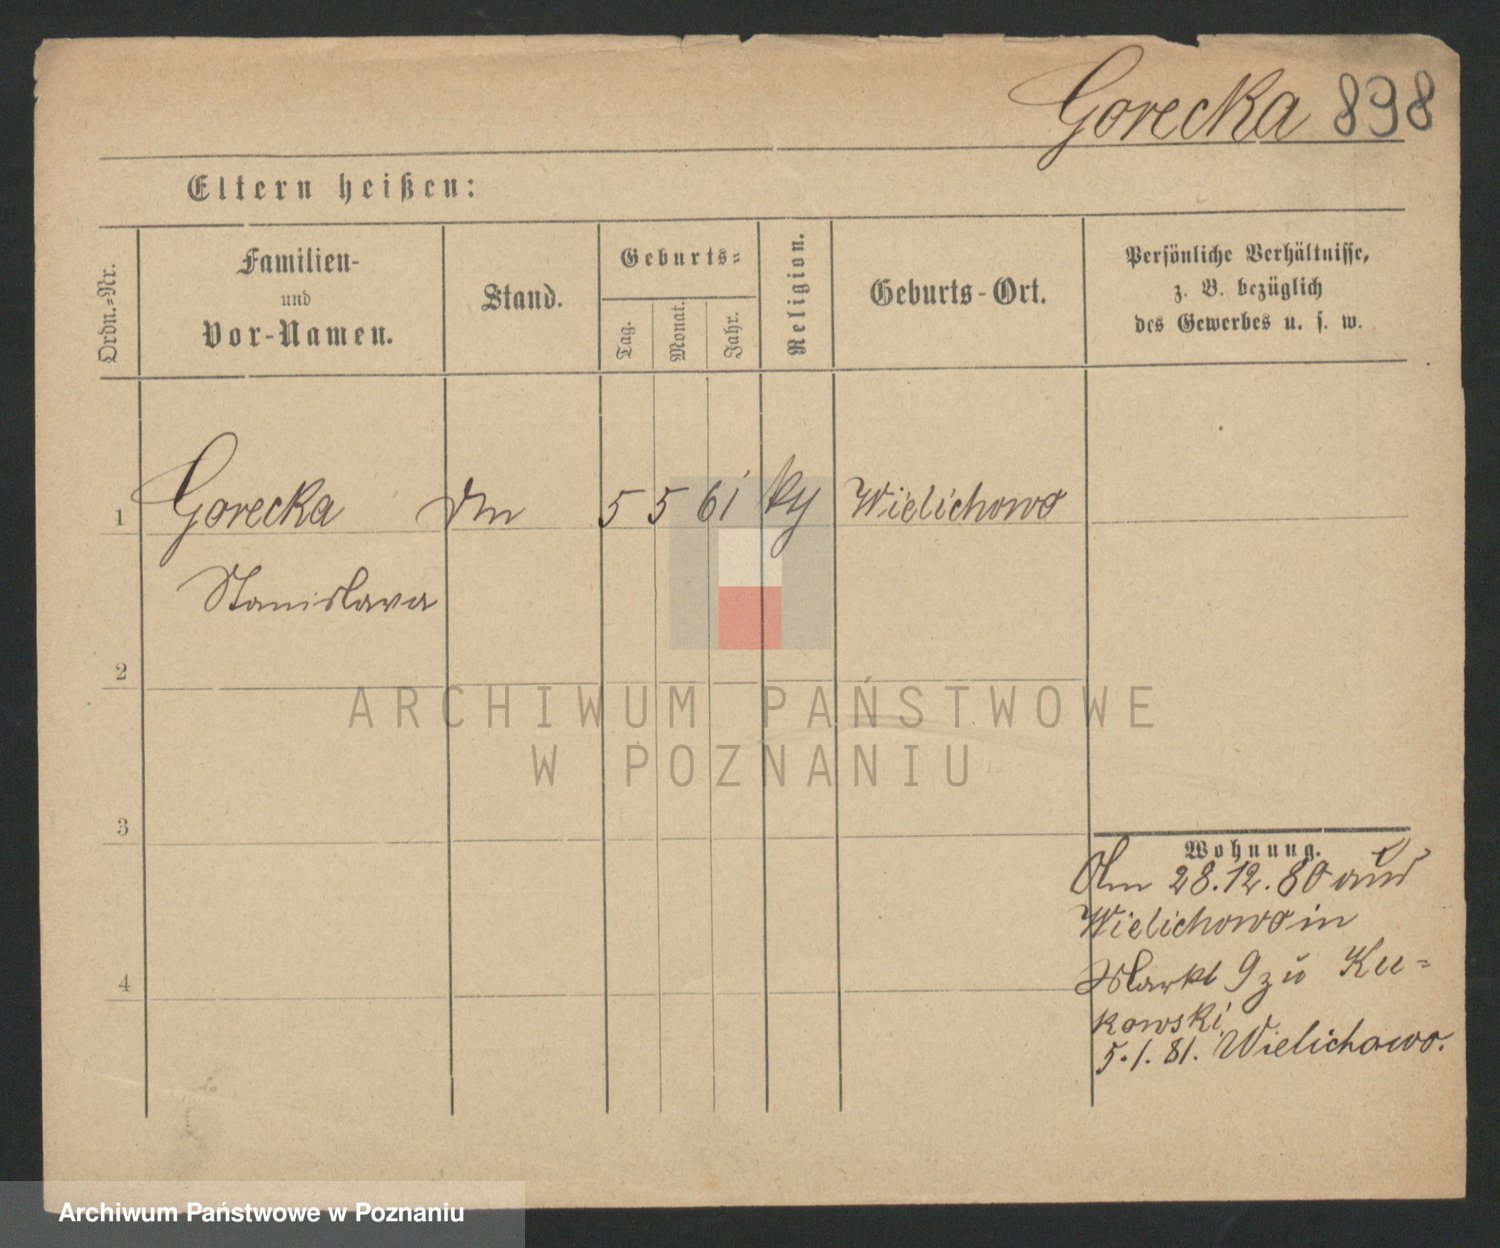 Gorecka 898
Eltern heißen:
Ordn.-Nr.
Familien-
und
Vor-Namen.
Stand.
Geburts-
Tag.
Monat.
Jahr.
Religion.
Geburts-Ort.
Persönliche Verhältnisse,
z. B. bezüglich
des Gewerbes u. s. w.
1 Gorecka 5 5 61 Wielichowo
Stanislava
2
3
4
Wohnung.
Am 28.12.80 aus
Wielichowo in
Markt 9 zu Ku-
kowski
5.1.81. Wielichowo.
ARCHIWUM PAŃSTWOWE
W POZNANIU
Archiwum Państwowe w Poznaniu